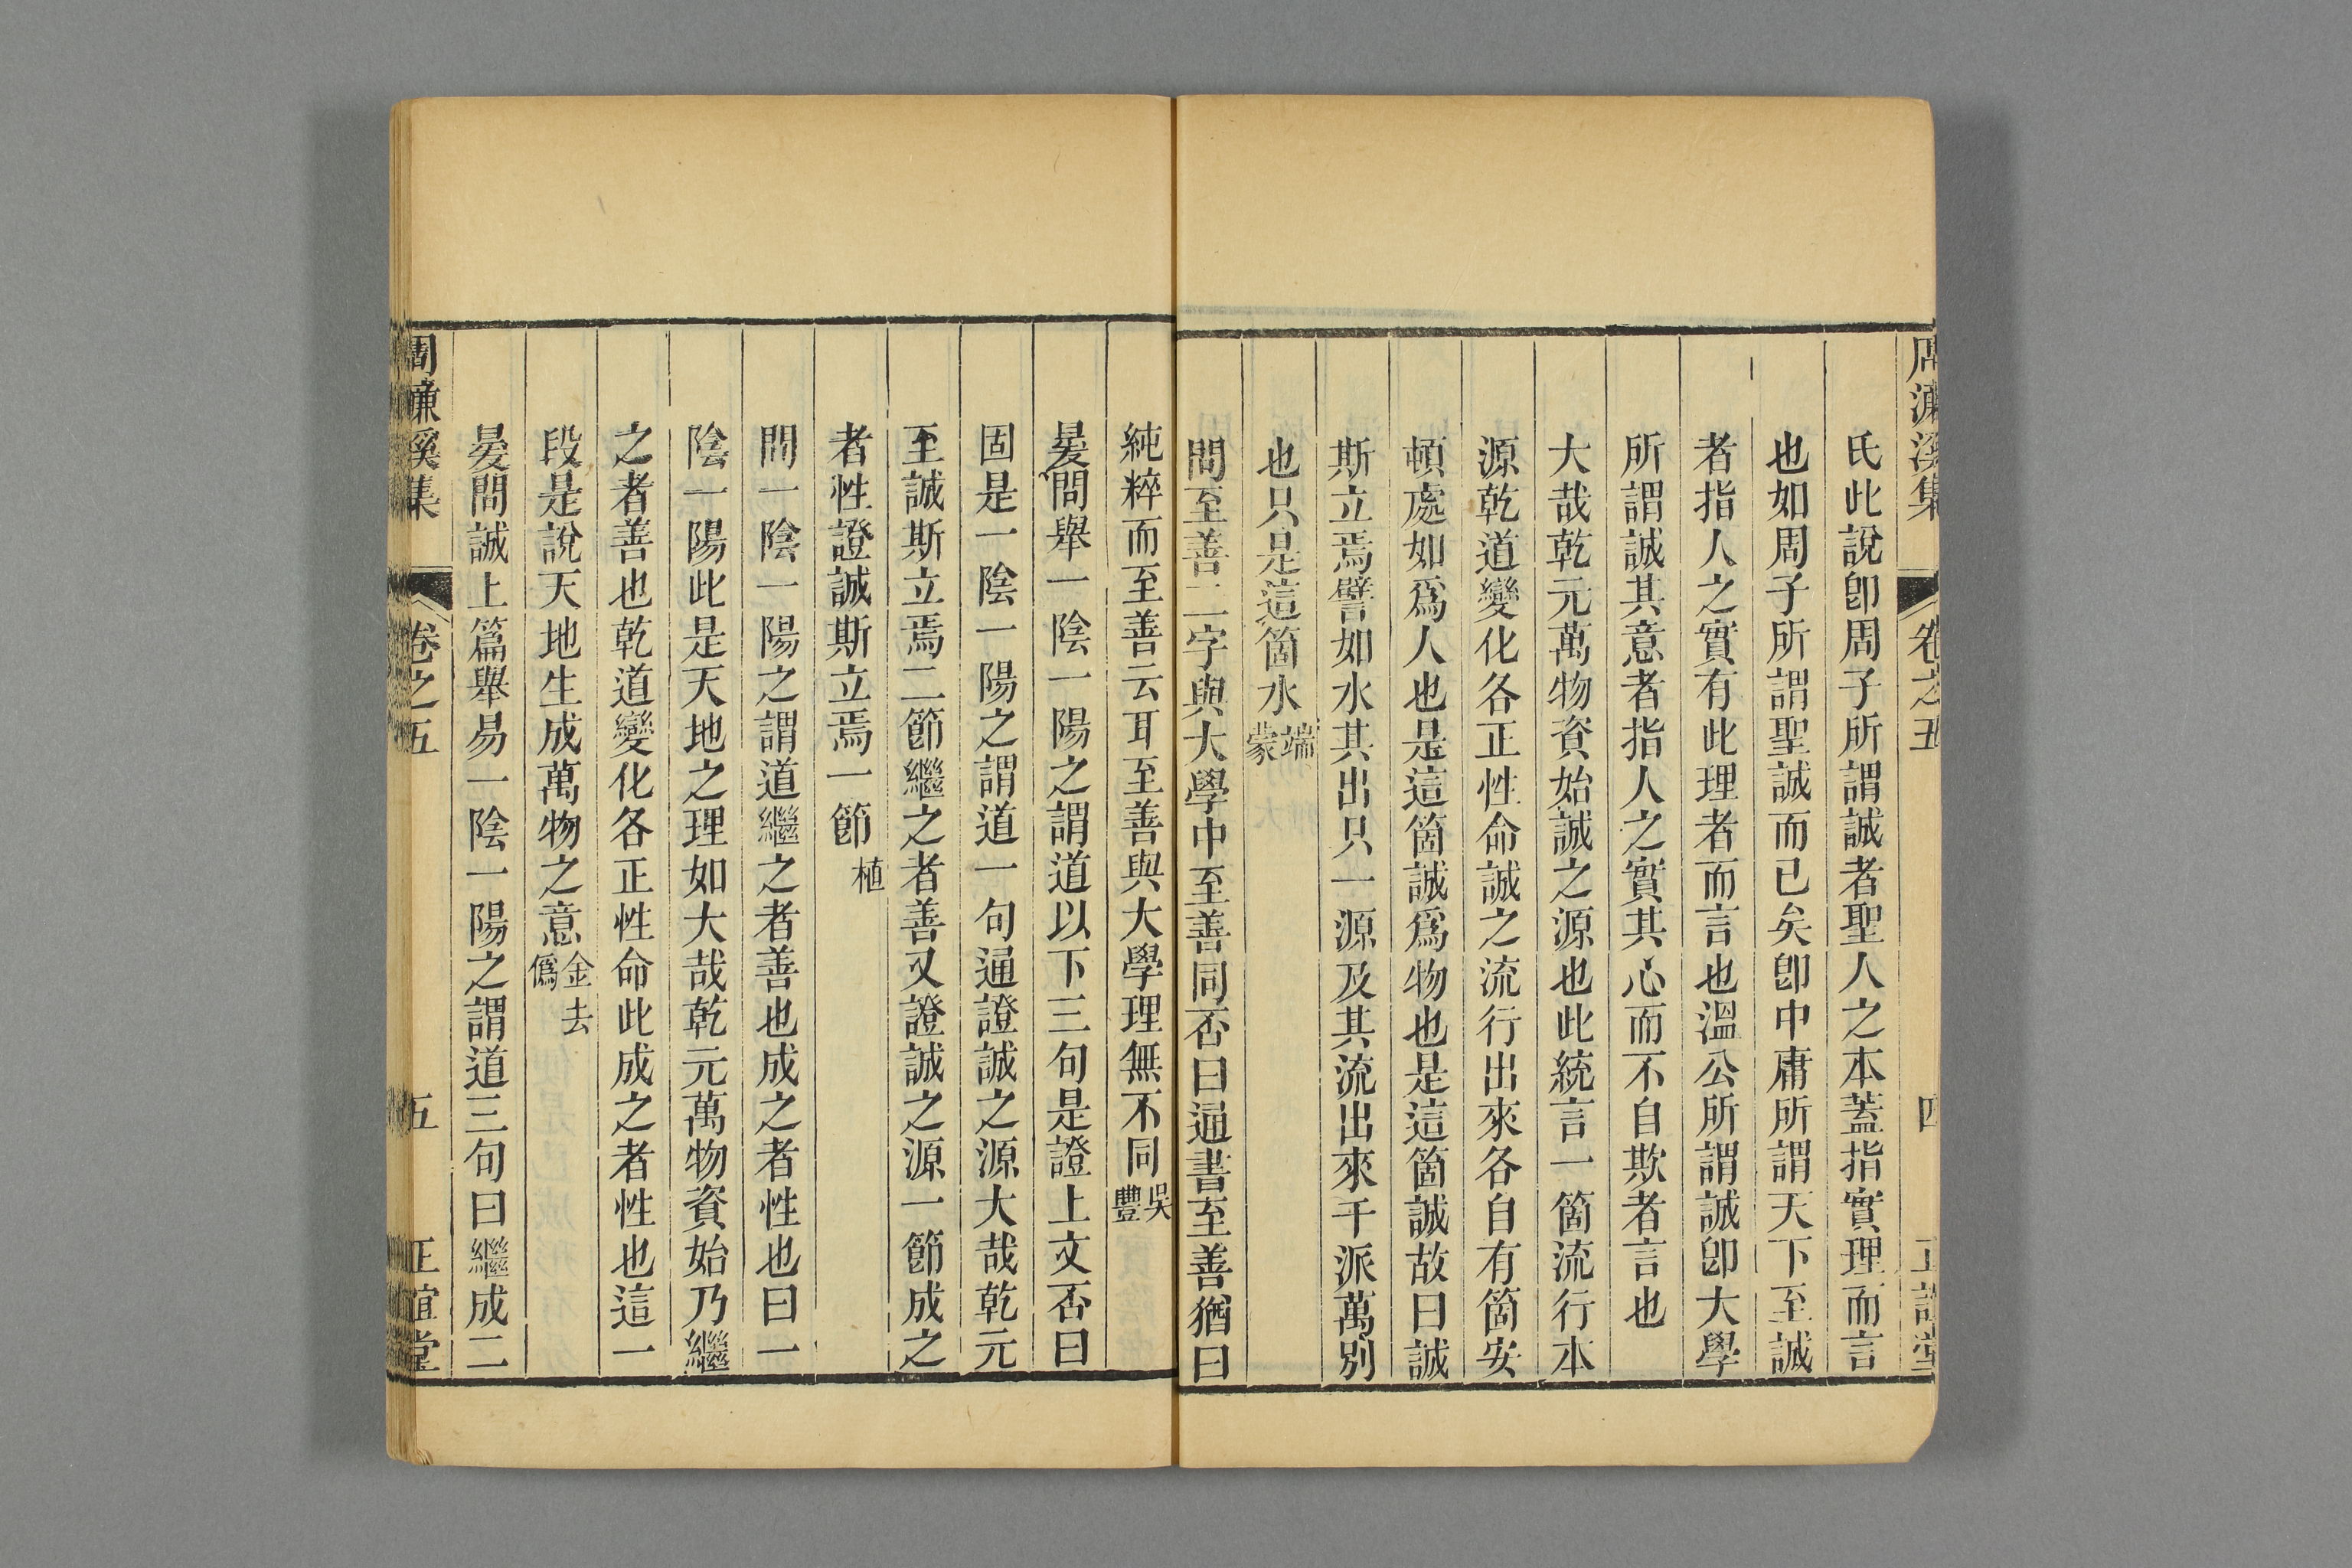 周濂溪集 卷之五 四 正誼堂
氏此說卽周子所謂誠者聖人之本蓋指實理而言
也如周子所謂聖誠而已矣卽中庸所謂天下至誠
者指人之實有此理者而言也溫公所謂誠卽大學
所謂誠其意者指人之實其心而不自欺者言也
大哉乾元萬物資始誠之源也此統言一箇流行本
源乾道變化各正性命誠之流行出來各自有箇安
頓處如爲人也是這箇誠爲物也是這箇誠故曰誠
斯立焉譬如水其出只一源及其流出來千派萬別
也只是這箇水端蒙
問至善二字與大學中至善同否曰通書至善猶曰
純粹而至善云耳至善與大學理無不同吳豐
㬊問舉一陰一陽之謂道以下三句是證上文否曰
固是一陰一陽之謂道一句通證誠之源大哉乾元
至誠斯立焉二節繼之者善又證誠之源一節成之
者性證誠斯立焉一節植
問一陰一陽之謂道繼之者善也成之者性也曰一
陰一陽此是天地之理如大哉乾元萬物資始乃繼
之者善也乾道變化各正性命此成之者性也這一
段是說天地生成萬物之意金去僞
㬊問誠上篇舉易一陰一陽之謂道三句曰繼成二
周濂溪集 卷之五 五 正誼堂